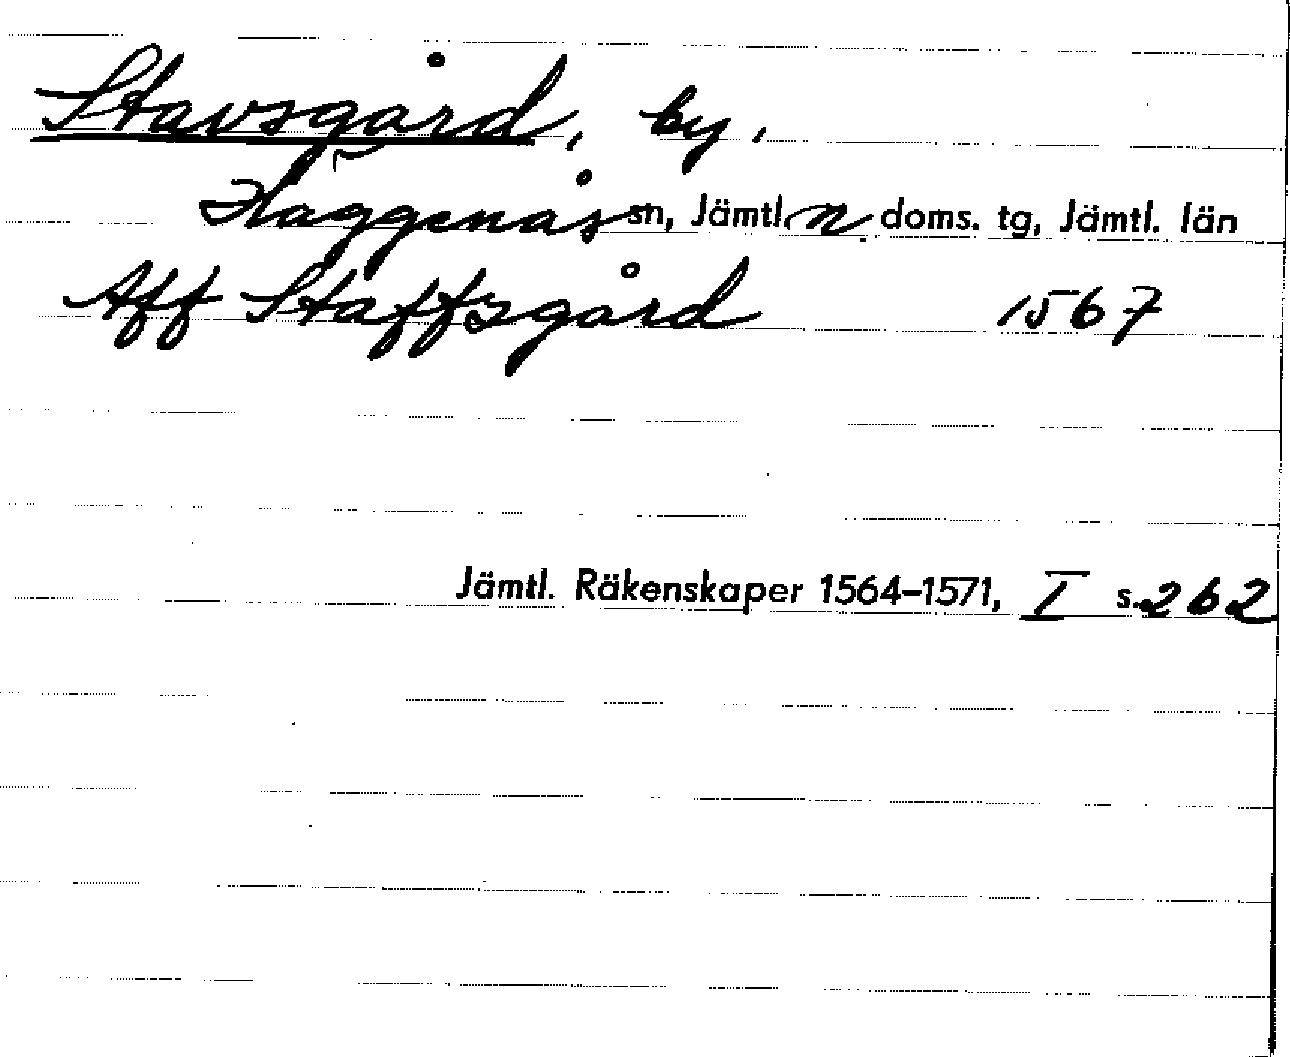 Stavsgård, by,
Häggenås sn, Jämtl. n doms. tg, Jämtl. län
Aff Staffsgård 1567
Jämtl. Räkenskaper 1564–1571, I s. 262